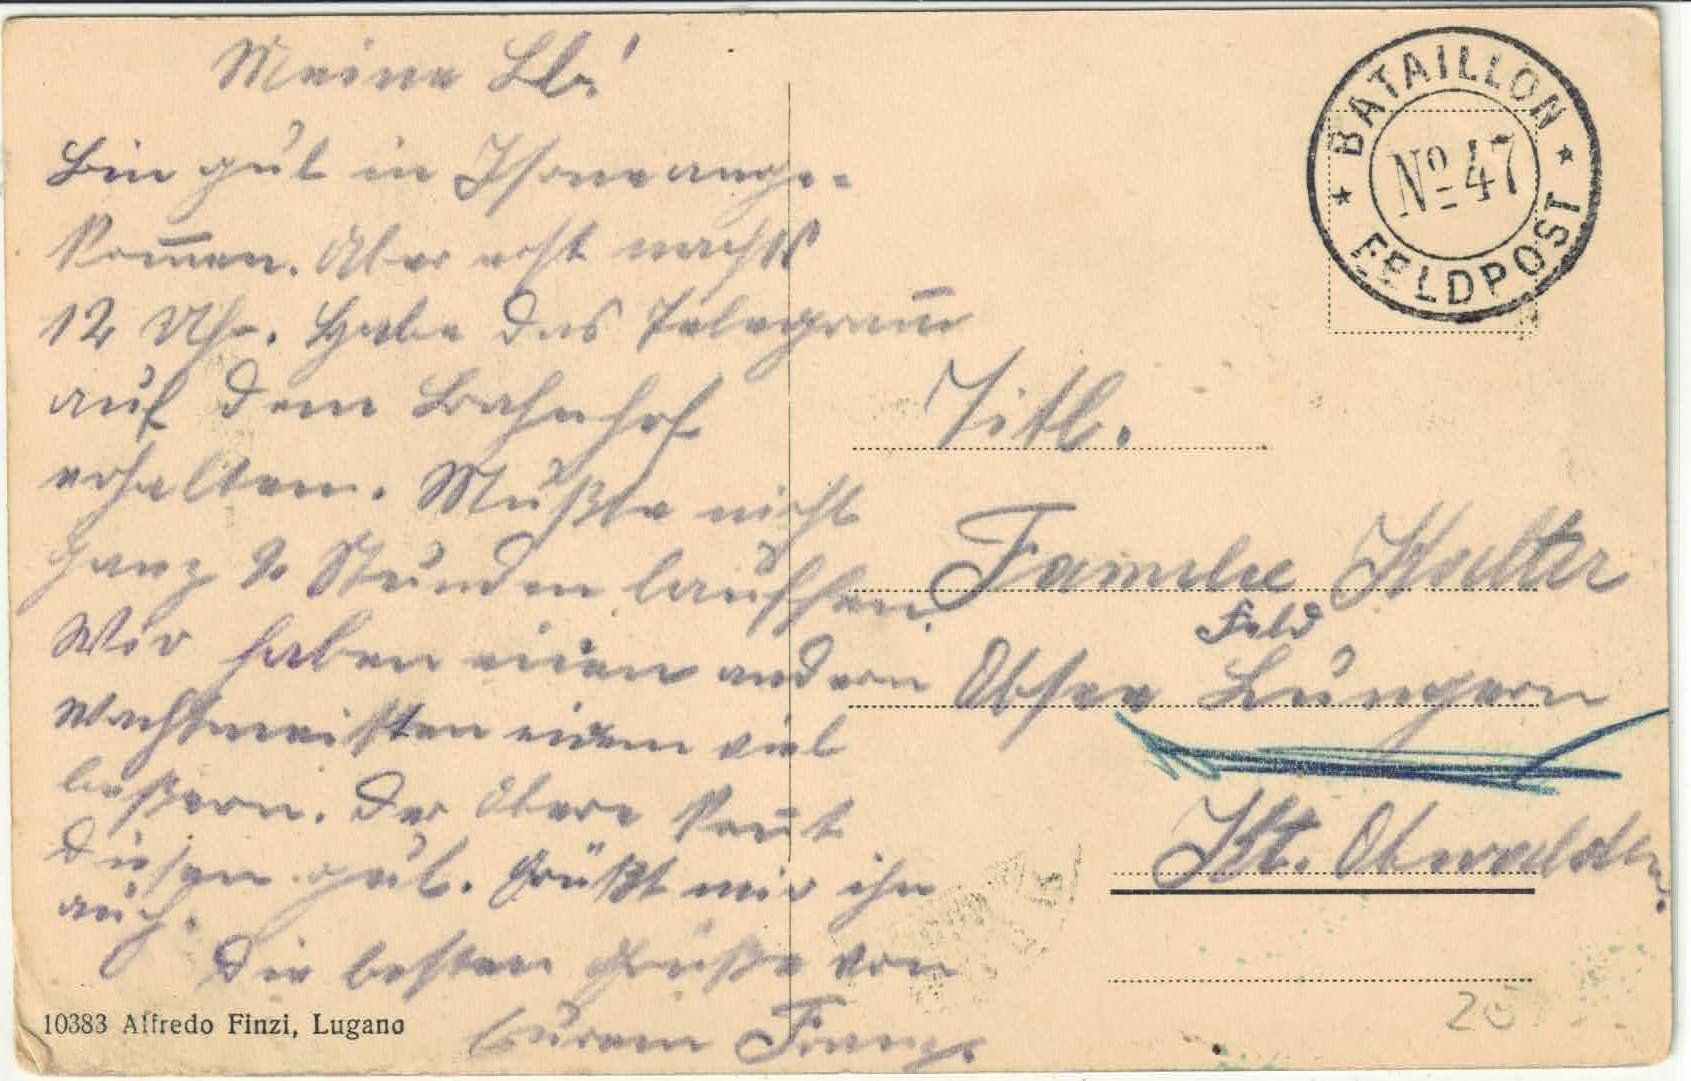 Meine Lb!
Bin gut in Isone ange-
kom̅en. Aber erst nachts
12 Uhr. Habe das Telegram̅
auf dem Bahnhof
erhalten. Mußte nicht
ganz 2 Stunden lauffen.
Wir haben einen andern
Wachtmeister einen viel
beßern. Der Obere kent
diesen gut. Grüßt mir ihn
auch.
Die besten Grüße von
Eurem Franz.
10383 Alfredo Finzi, Lugano
BATAILLON
No 47
FELDPOST
Titl.
Familie
Feld
Obsee Lungern
Kt. Obwalden.
20